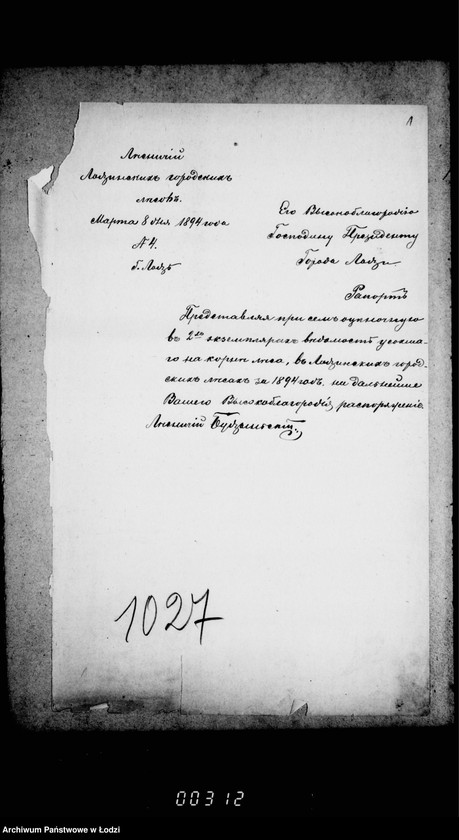 1
Лѣсничій
Лодзинскихъ городскихъ
лѣсовъ.
Марта 8 дня 1894 года
№ 4.
г. Лодзь
Его Высокоблагородію
Господину Президенту
Города Лодзи
Рапортъ
Представляя при семъ оцѣночную
въ 2хъ экземплярахъ вѣдомость усохша-
го на корню лѣса, въ Лодзинскихъ город-
скихъ лѣсахъ за 1894 годъ. на дальнѣйшее
Вашего Высокоблагородія, распоряженіе.
Лѣсничій
1027
00312
Archiwum Państwowe w Łodzi